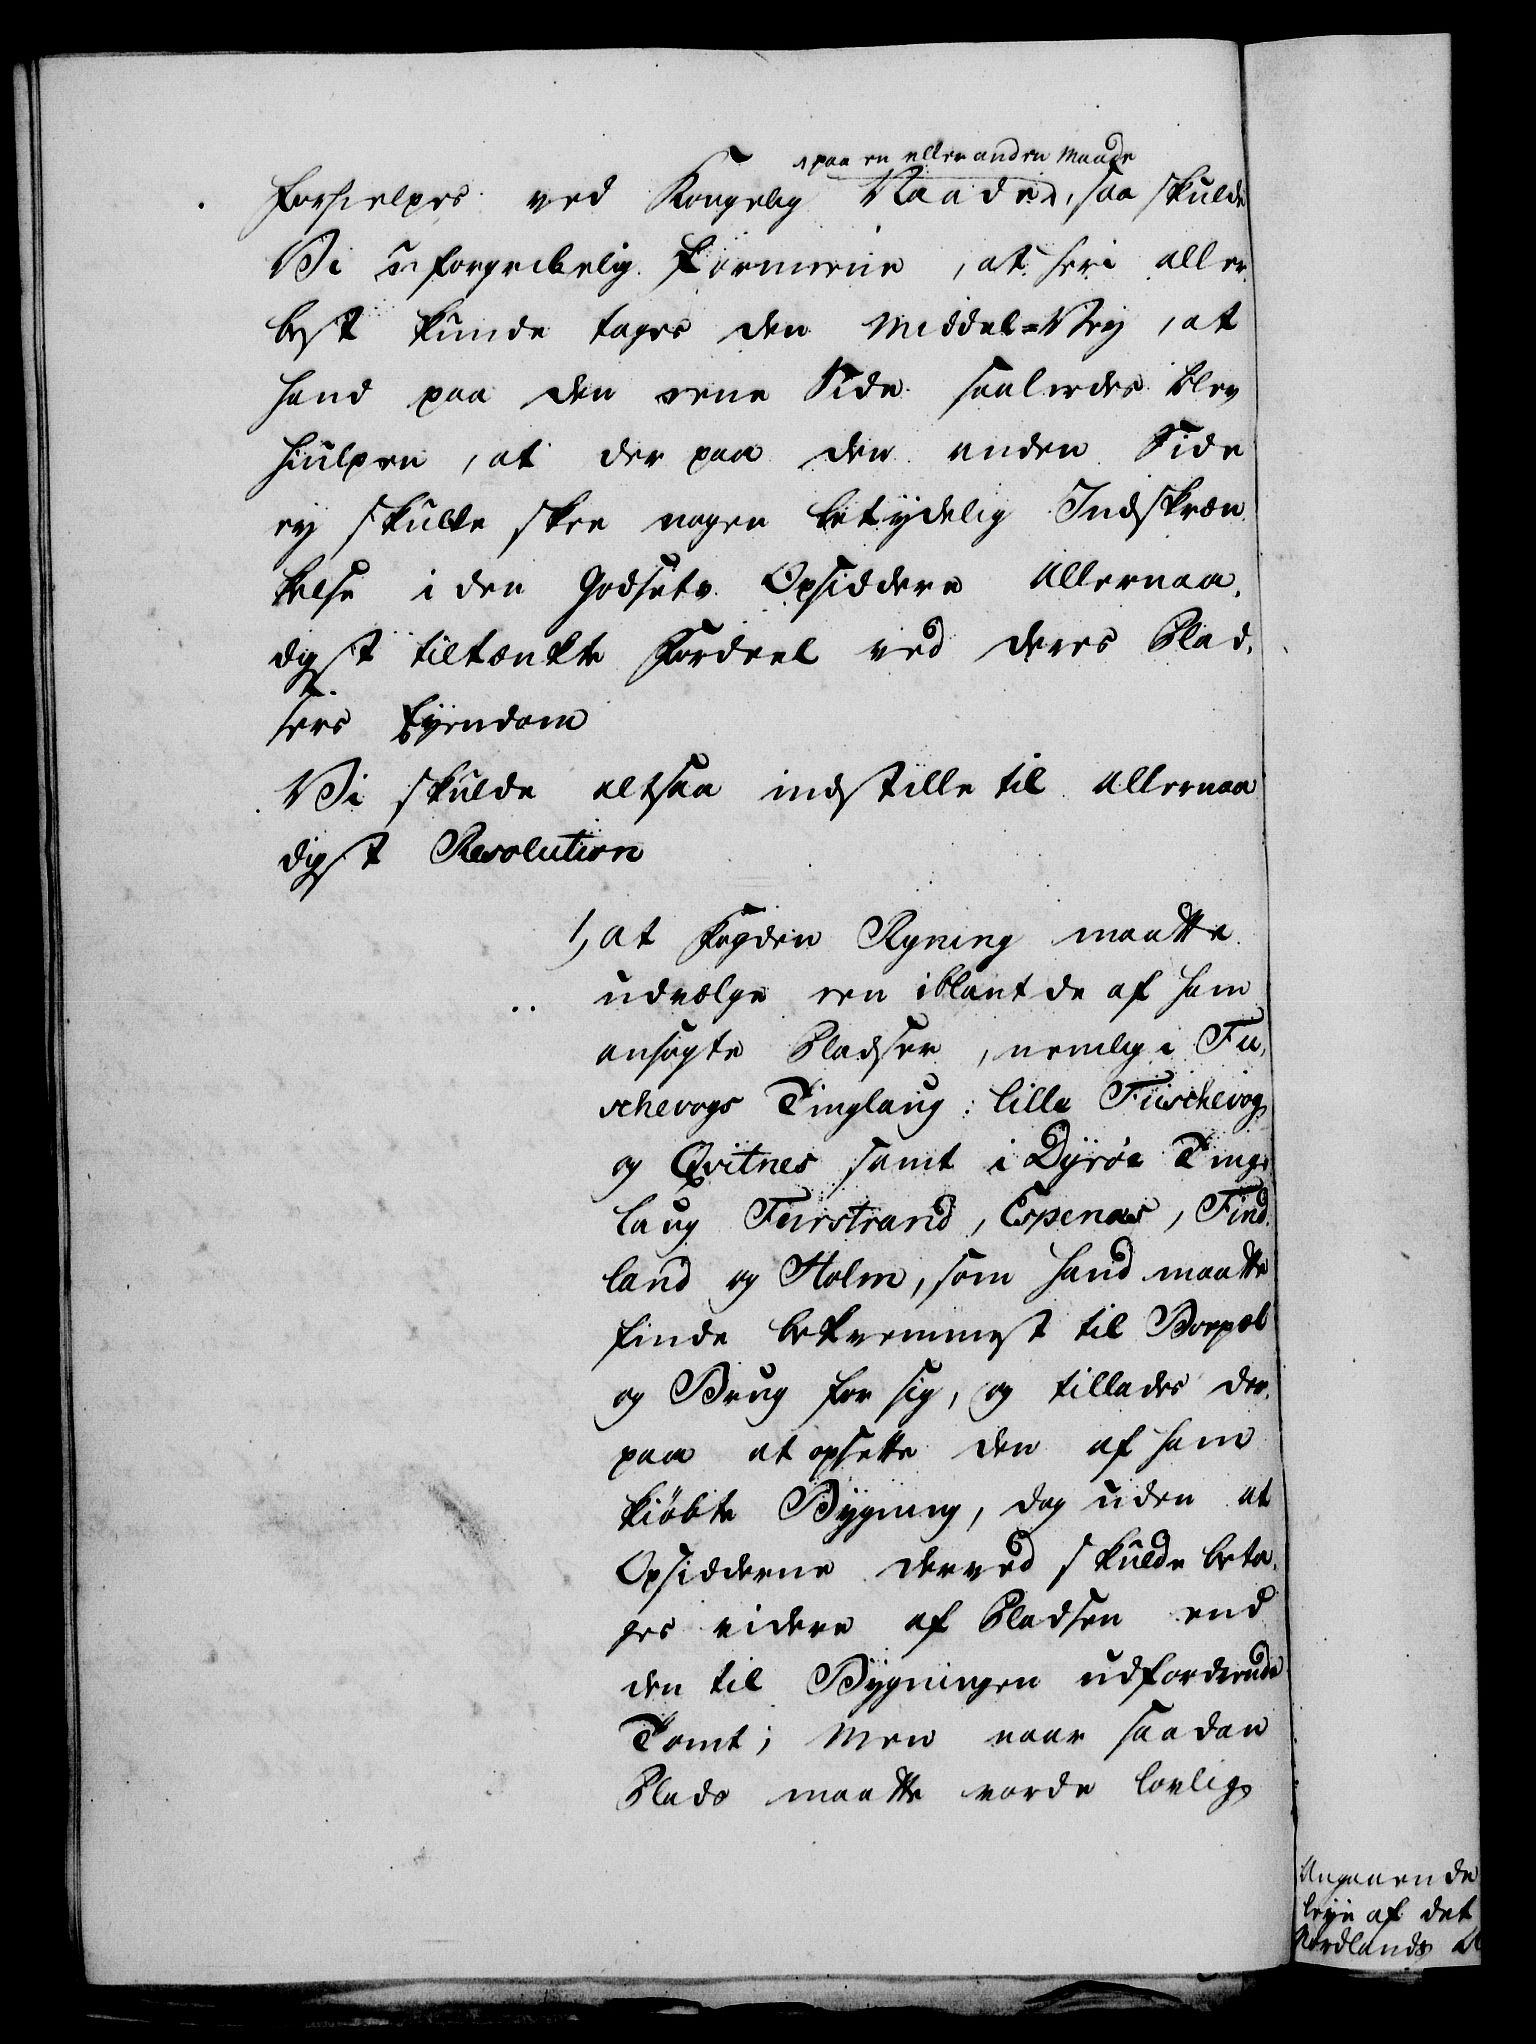 paa en eller anden Maade
forhielpes ved Kongelig Naade, saa skulde
Vi uforgribelig formeene, at heri aller
best kunde tages den Middel-Vey, at
hand paa den eene Side saaledes blev
hiulpen, at der paa den anden Side
ey skulde skee nogen betydelig Indskræn
kelse i den Godsets Opsiddere allernaa
digst tiltænkte Fordeel ved deres Plad
sers Eyendom
Vi skulde altsaa indstille til allernaa
digst Resolution
1, at Fogden Ryning maatte
udvælge een iblant de af ham
ansøgte Pladser, nemlig i Fu
schevogs Tinglaug: lille Fuschevog
og Qvitnes samt i Dyrøe Ting
laug Furstrand, Espenæs, Find
land og Holm, som hand maatte
finde bekvemmest til Boepæl
og Brug for sig, og tillades der
paa at opsette den af ham
kiøbte Bygning, dog uden at
Opsidderne derved skulde beta
ges videre af Pladsen end
den til Bygningen udfordrende
Tomt; Men naar saadan
Plads maatte vorde lovlig
Angaaende
leye af det
Nordlands A